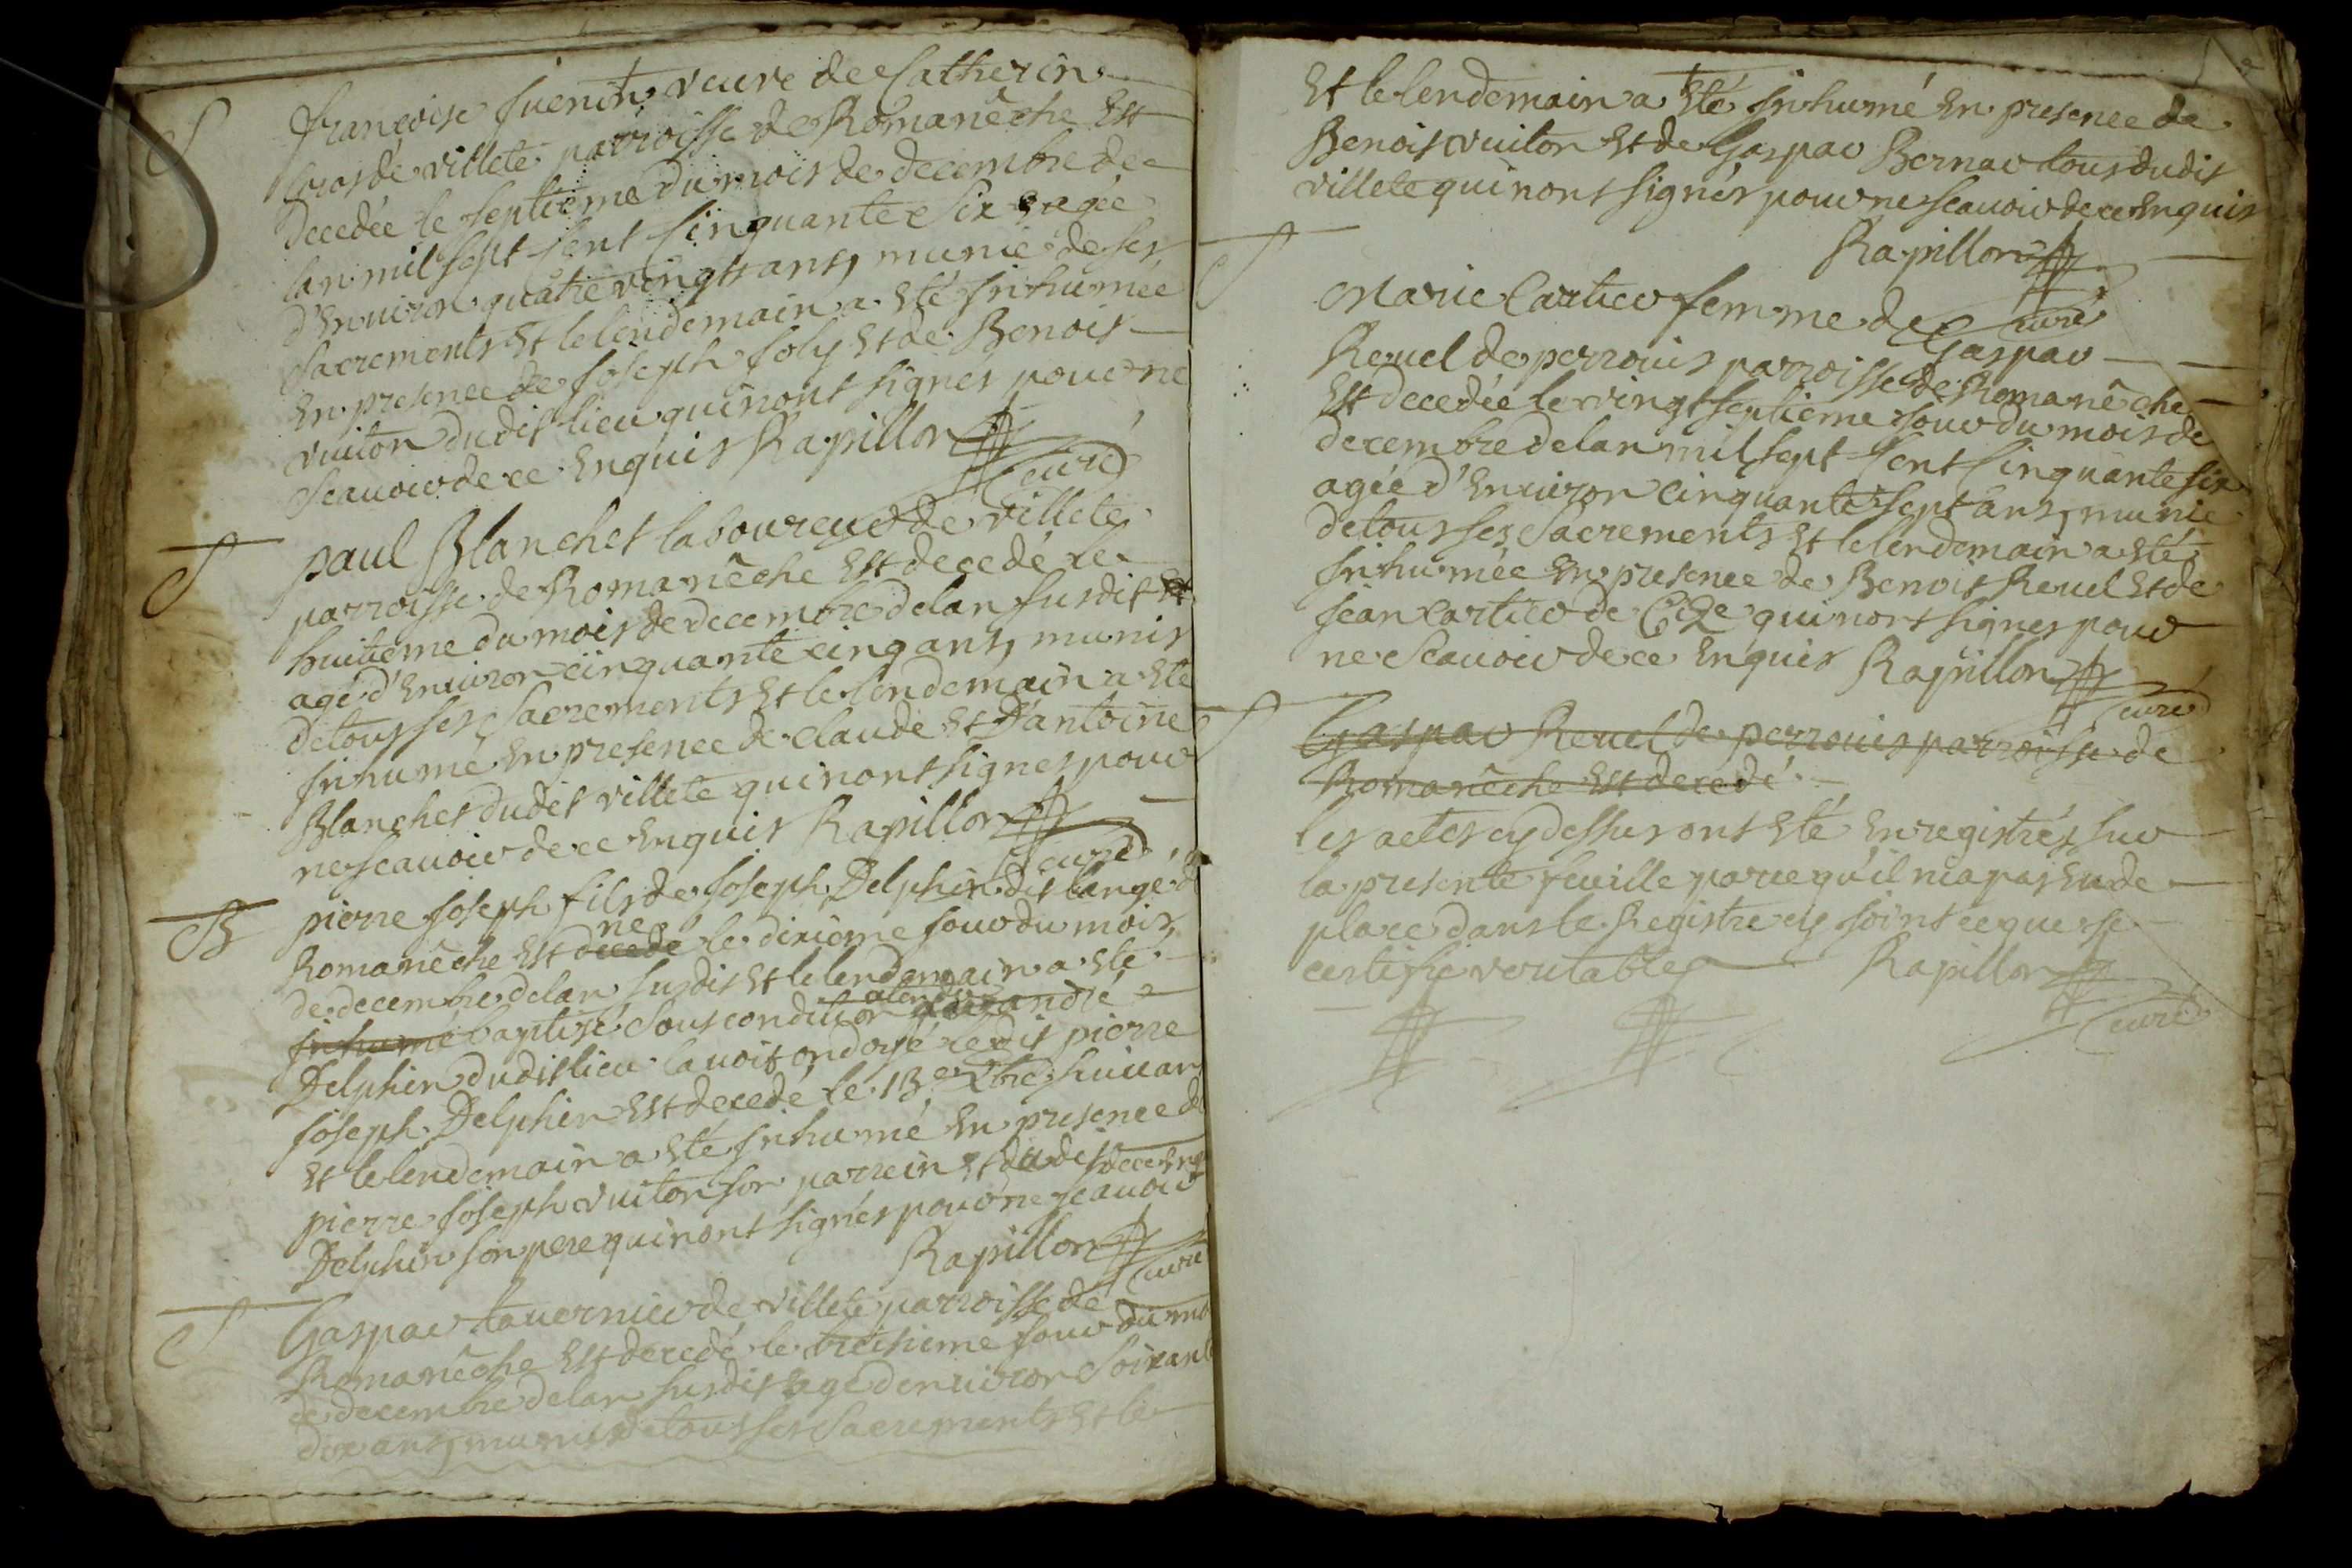 S
françoise Juenin veuve de Catherin
Coras de villete parroisse de Romanêche Est
decedée le septieme du mois de decembre de
lan mil sept Cent Cinquante Six agée
d'Environ quatre vingts ans, munie de ses
Sacrements Et le lendemain a Eté Jnhumée
En presence de Joseph Joly Et de Benois
vuiton dudit lieu qui nont signes pour ne
Scauoir de ce Enquis Rapillon
curé
S
paul Blanchet laboureur de villete
parroisse de Romanêche Est decedé le
huitieme du mois de decembre de lan susdit
agé d'Environ cinquante cinq ans, munis
de tous ses Sacrements Et le lendemain a Eté
Jnhumé En presence de claude Et D'antoine
Blanchet dudit villete qui nont signes pour
ne scauoir de ce Enquis Rapillon
curé
B
pierre Joseph fils de Joseph Delphin dit langé de
Romanêche Est decedé né le dixieme Jour du mois
de decembre de lan susdit Et le lendemain a Eté
Jnhumé baptisé Sous condition andré
Delphin dudit lieu lauoit ondoyé ledit pierre
Joseph Delphin Est decedé le 13e Xbre suiuan
Et le lendemain a Eté Jnhumé En presence de
pierre Joseph vuiton son parrein Et dudit
Delphin son pere qui nont signés pour ne scauoir de ce Enq
Rapillon
curé
S
Gaspar tauernier de villete parroisse de
Romanêche Est decedé le treisieme Jour du mo
de decembre de lan susdit agé denuiron Soixant
dix ans, munis de tous ses Sacrements Et le
Et le lendemain a Eté Jnhumé En presence de
Benois vuiton Et de Gaspar Bernar tous dudit
villete qui nont signés pour ne scauoir de ce Enquis
Rapillon
curé
S
Marie Cartier femme de Gaspar
Reuel de perrouis parroisse de Romanêche
Est decedée le vingt septieme Jour du mois de
decembre de lan mil sept Cent Cinquante six
agée d'Enuiron cinquante sept ans, munie
de tous ses Sacrements Et le lendemain a Eté
Jnhumée En presence de Benoit Reuel Et de
Jean Cartier de qui nont signes pour
ne Scauoir de ce Enquis Rapillon
curé
S
Gaspar Reuel de perrouis parroisse de
Romanêche Est decedé
les actes cy dessus ont Eté Enregistrés sur
la presente feuille parce qu'il nia pas Eu de
place dans le Registre cy Joint ce que Je
certifie veritable Rapillon
curé